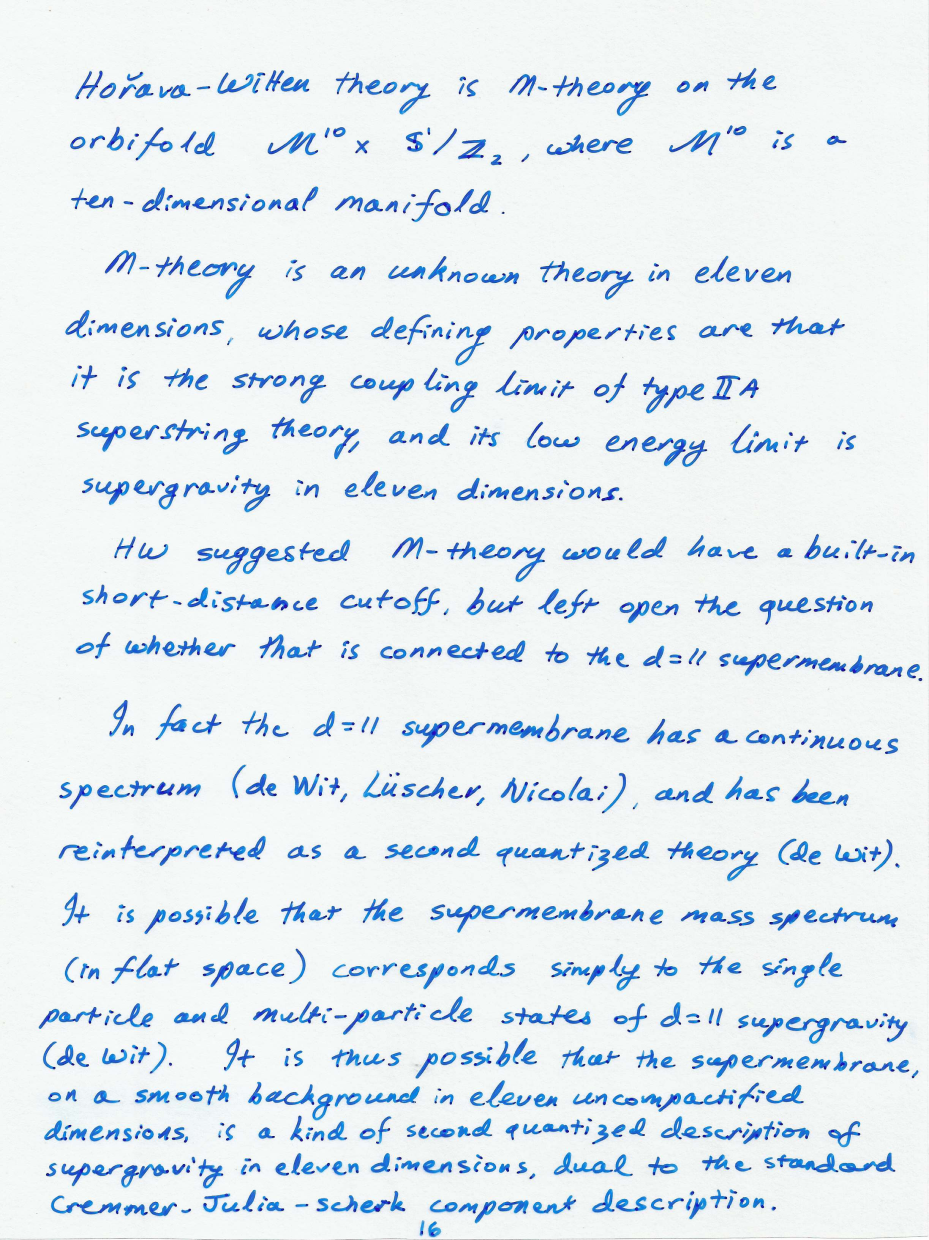 Hořava-Witten theory is M-theory on the
orbifold M¹⁰ x S¹/Z₂, where M¹⁰ is a
ten-dimensional manifold.
M-theory is an unknown theory in eleven
dimensions, whose defining properties are that
it is the strong coupling limit of type IIA
superstring theory, and its low energy limit is
supergravity in eleven dimensions.
HW suggested M-theory would have a built-in
short-distance cutoff, but left open the question
of whether that is connected to the d=11 supermembrane.
In fact the d=11 supermembrane has a continuous
spectrum (de Wit, Lüscher, Nicolai), and has been
reinterpreted as a second quantized theory (de Wit).
It is possible that the supermembrane mass spectrum
(in flat space) corresponds simply to the single
particle and multi-particle states of d=11 supergravity
(de Wit). It is thus possible that the supermembrane,
on a smooth background in eleven uncompactified
dimensions, is a kind of second quantized description of
supergravity in eleven dimensions, dual to the standard
Cremmer-Julia-Scherk component description.
16